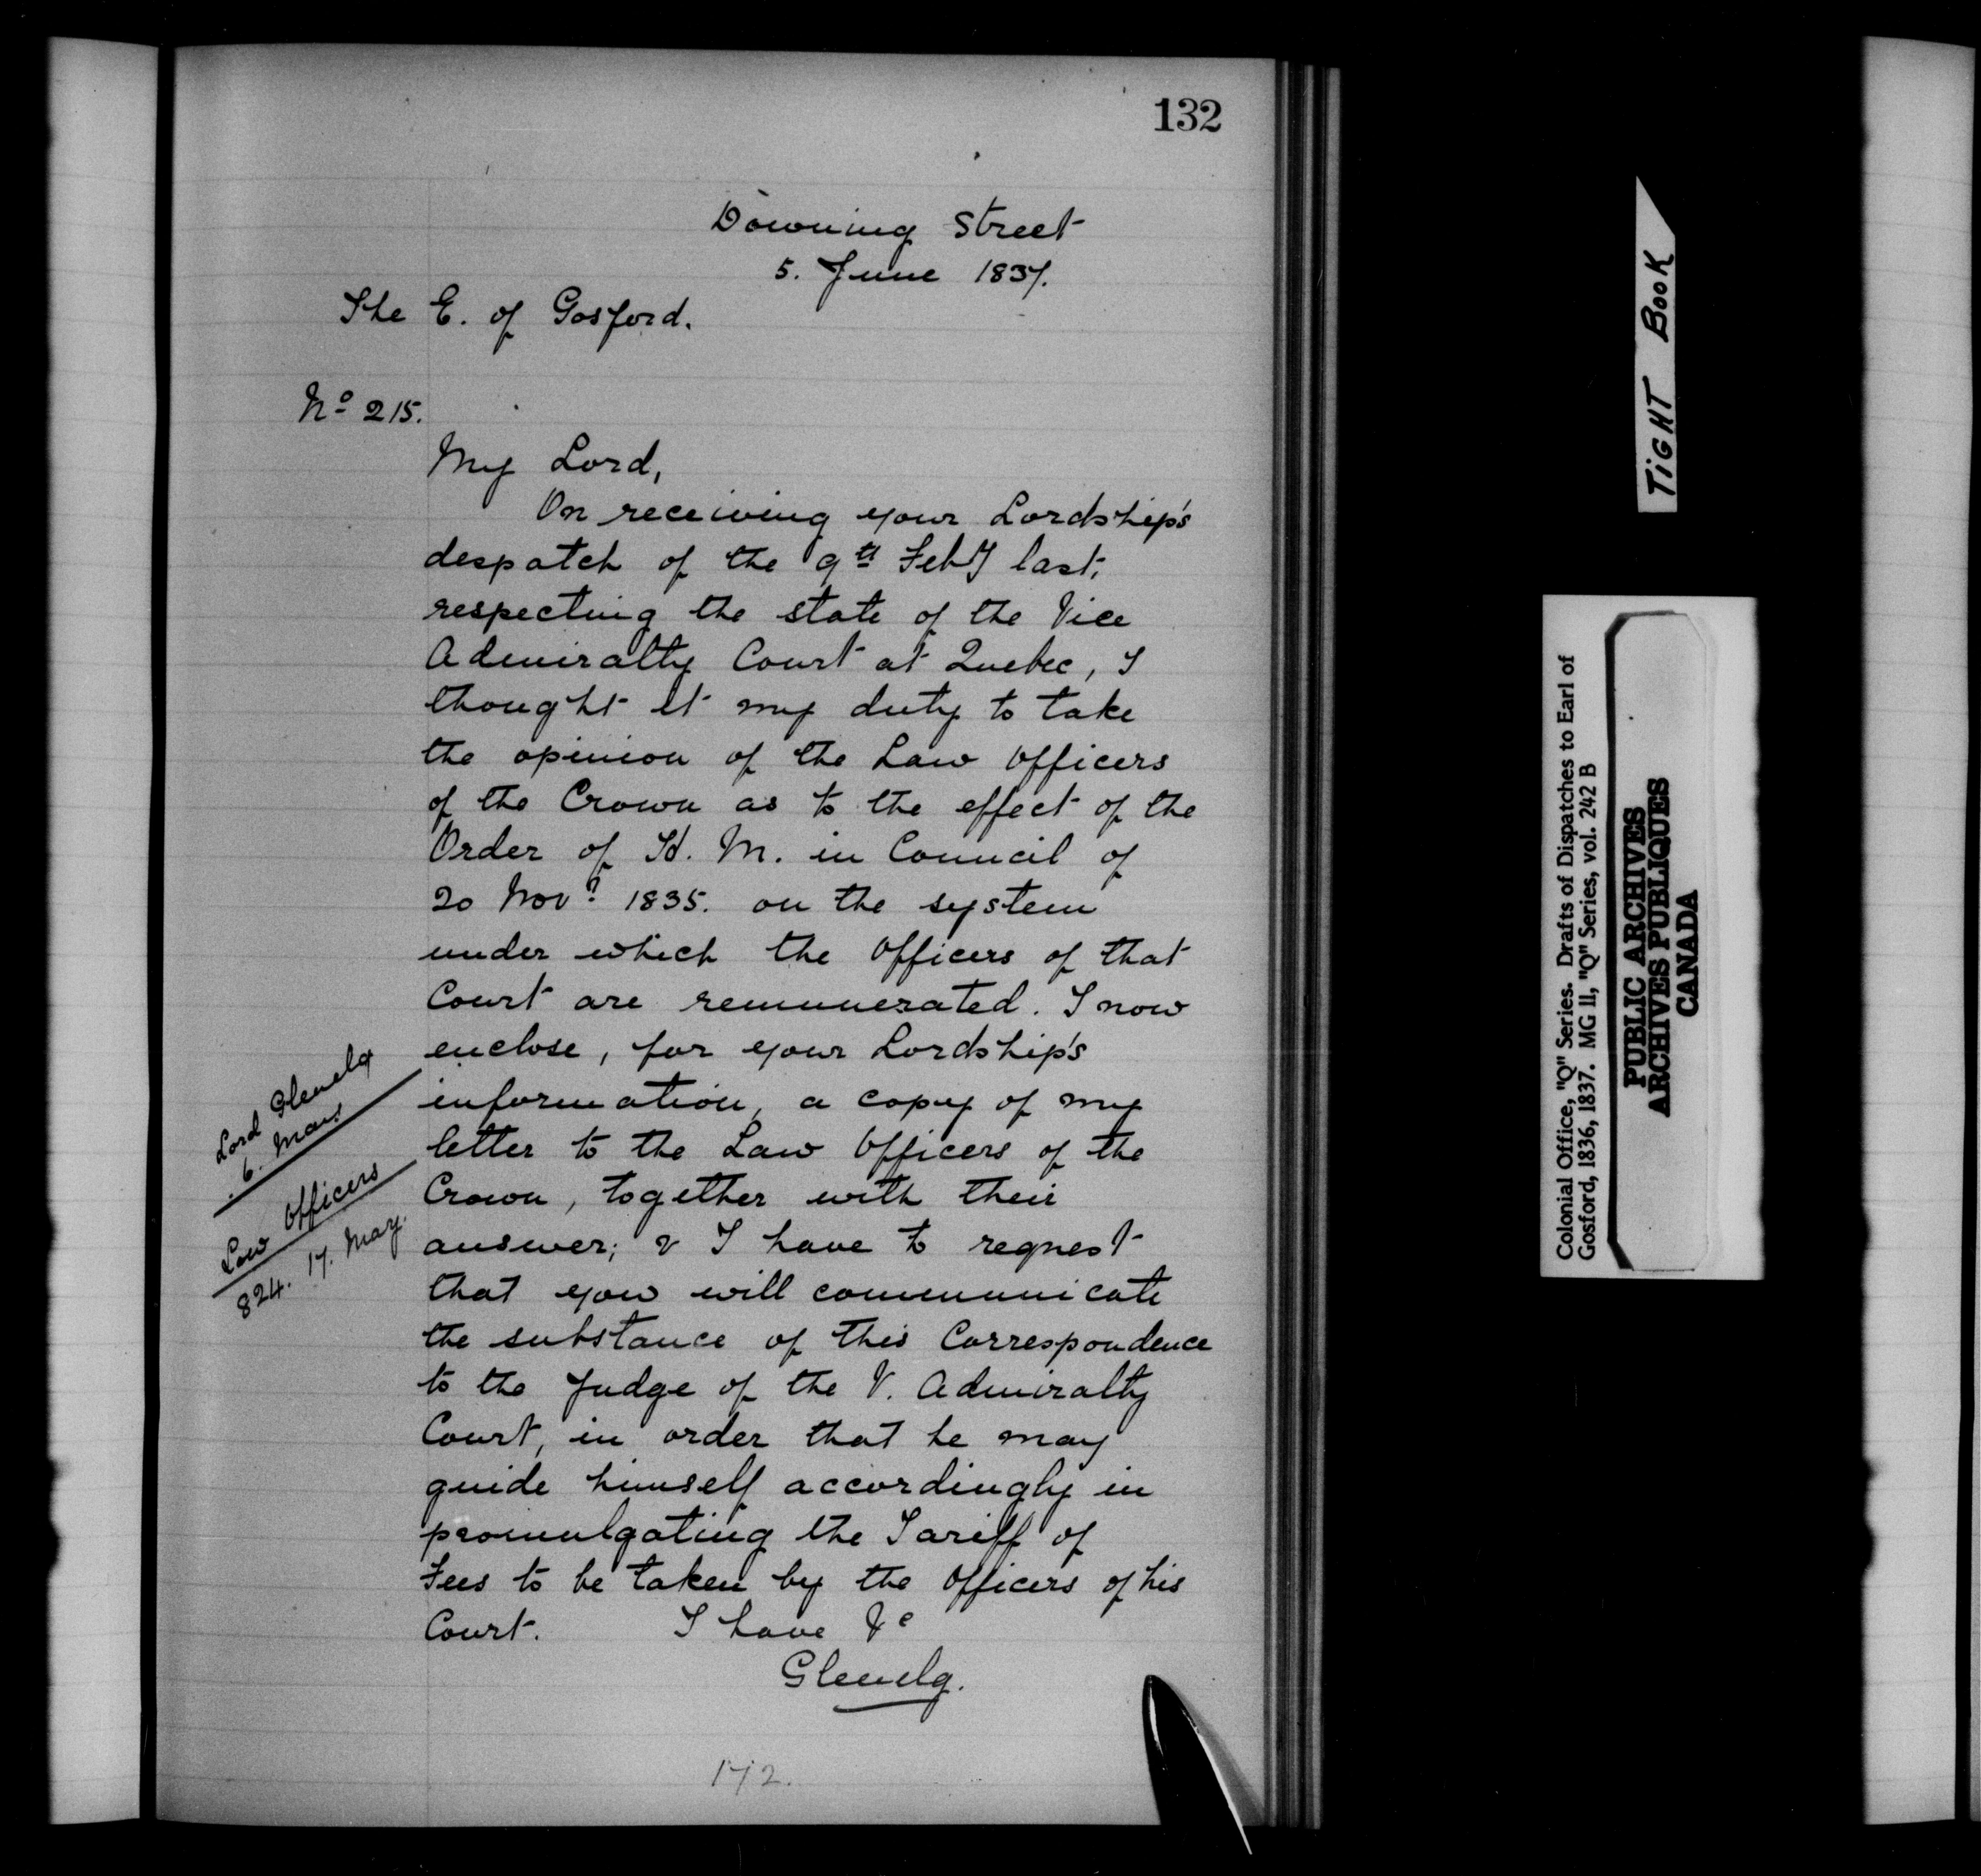 132
Downing Street
5. June 1837.
The E. of Gosford.
No 215.
My Lord,
On receiving your Lordship's
despatch of the 9th Feby last,
respecting the state of the Vice
Admiralty Court at Quebec, I
thought it my duty to take
the opinion of the Law Officers
of the Crown as to the effect of the
Order of H. M. in Council of
20 Novr 1835. on the system
under which the Officers of that
Court are remunerated. I now
enclose, for your Lordship's
information, a copy of my
letter to the Law Officers of the
Crown, together with their
answer; & I have to request
that you will communicate
the substance of this Correspondence
to the Judge of the V. Admiralty
Court, in order that he may
guide himself accordingly in
promulgating the Tariff of
Fees to be taken by the Officers of his
Court. I have &c
Glenelg.
172.
Lord Glenelg
6.
Law Officers
824. 17. May.
TIGHT BOOK
Colonial Office, "Q" Series. Drafts of Dispatches to Earl of
Gosford, 1836, 1837. MG 11, "Q" Series, vol. 242 B
PUBLIC ARCHIVES
ARCHIVES PUBLIQUES
CANADA